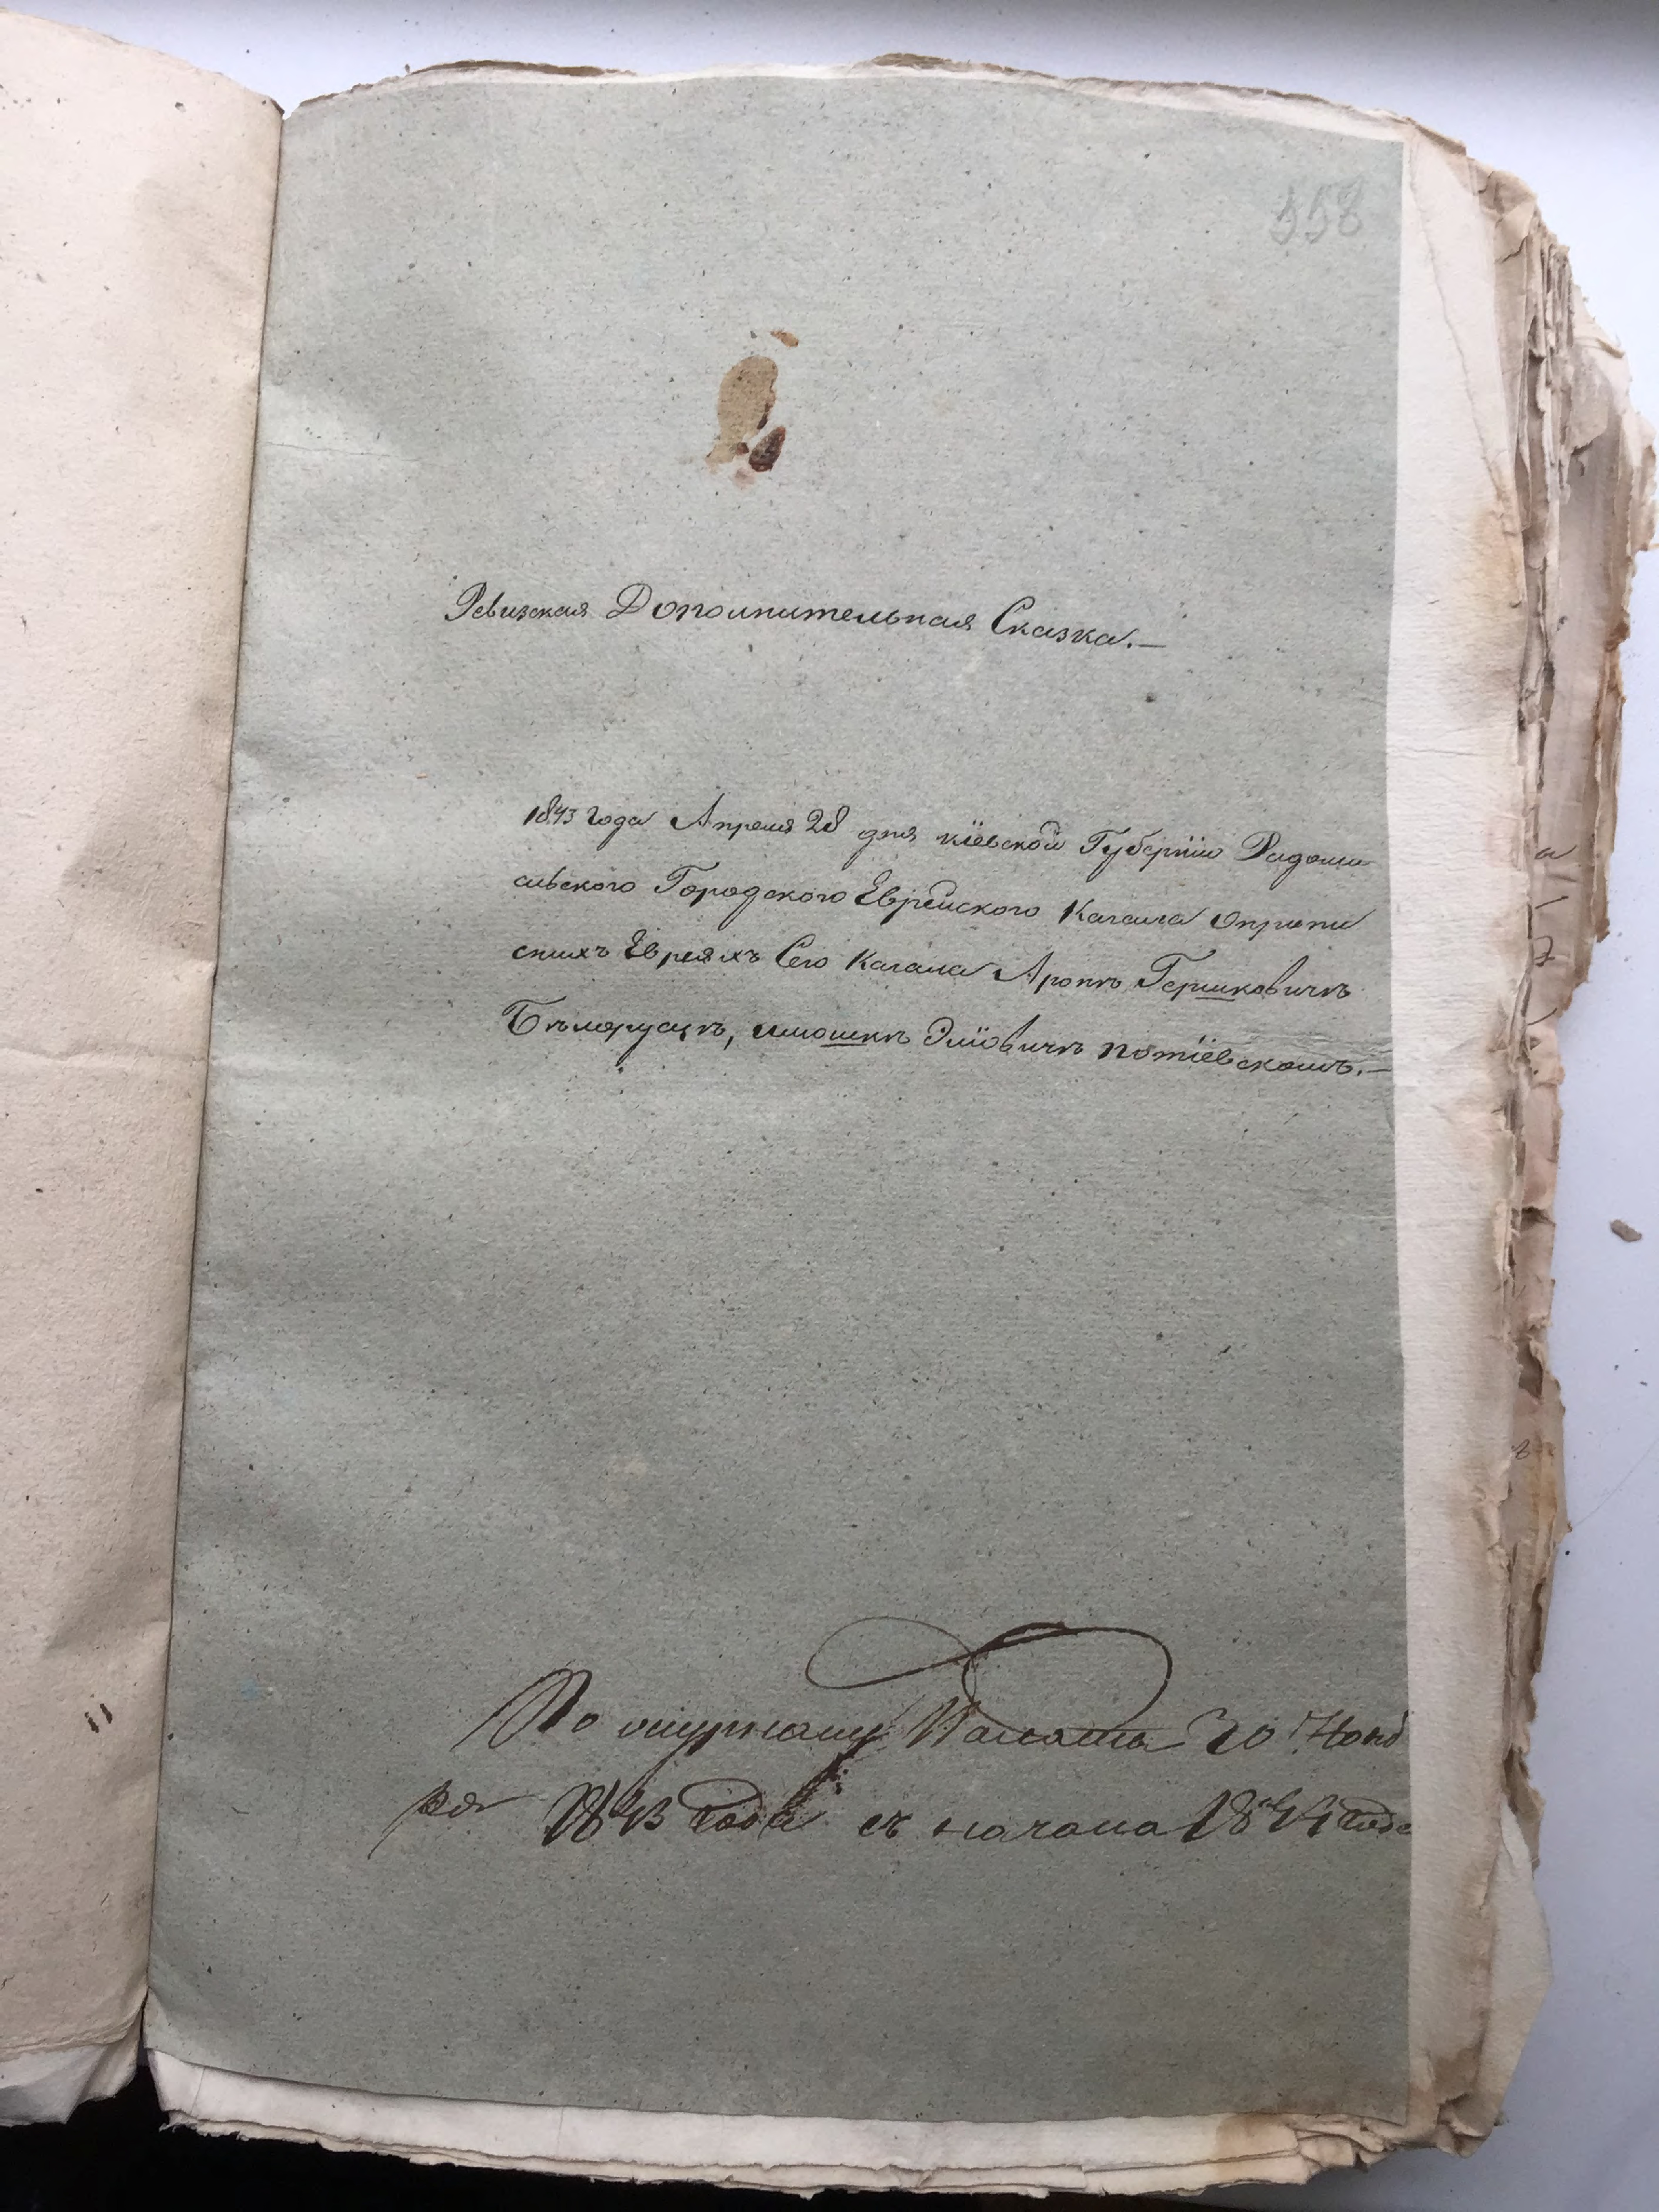 558
Ревизская Дополнительная Сказка.—
1843 года Апреля 28 дня кіевской Губерніи Радомы
сльского Городского Еврейского Кагала оприпи
сныхъ Евреяхъ Сего Кагала Аронѣ Гершковичѣ
Бѣлорусцѣ, Мошкѣ Эліовичѣ Потіевскомъ.—
По журналу Палаты 30 Нояб
ря 1843 года съ начала 1844 года